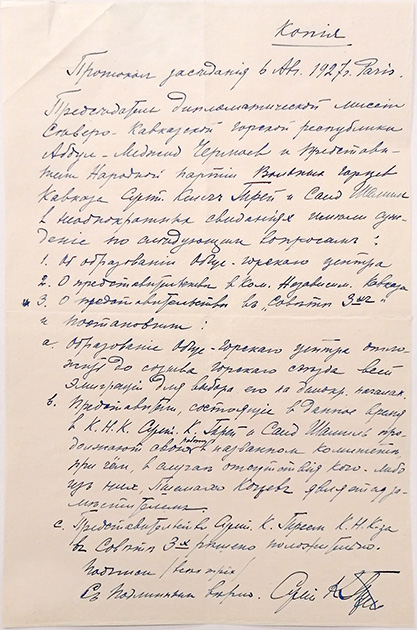 Копія
Протокол заседанія 6 Авг. 1927 г. Paris.
Председатель дипломатической миссіи
Северо-Кавказской горской республики
Абдул-Меджид Чермоев и представи-
тели Народной партіи Вольных горцев
Кавказа Султ. Клыч Гирей и Саид Шамиль
в неоднократных свиданіях имели суж-
деніе по следующим вопросам:
1. Об образовании обще-горского центра
2. О представительстве в Ком. Независим. Кавказа
* 3. О представительстве в "Совете 3-х"
и постановили:
a. Образование обще-горского центра отло-
жить до созыва горского съезда всей
эмиграціи для выбора его на демокр. началах.
b. Представители, состоящіе в данное время
в К.Н.К. Султ. К. Гирей и Саид Шамиль про-
должают свою работу в названном комитете
при чём, в случае отсутствія кого-либо
из них, Пшемахо Коцев является за-
местителем.
c. Представительство Султ. К. Гирея К.Н.К-за
в Совете 3-х решено положительно.
Подписи
С подлинным верно.